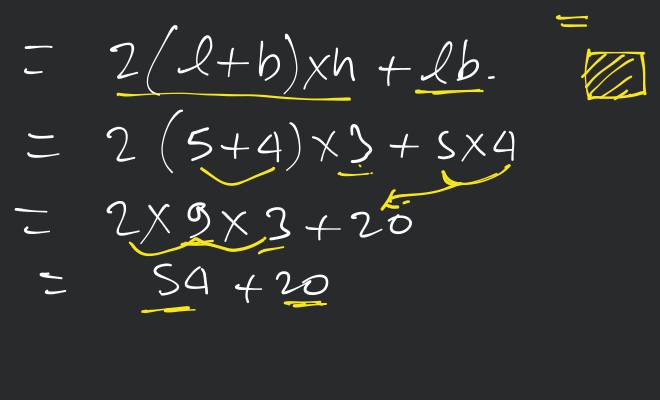 = 2(l+b)×h + lb.
= 2 (5+4)×3 + 5×4
= 2×9×3 + 20
= 54 + 20
=